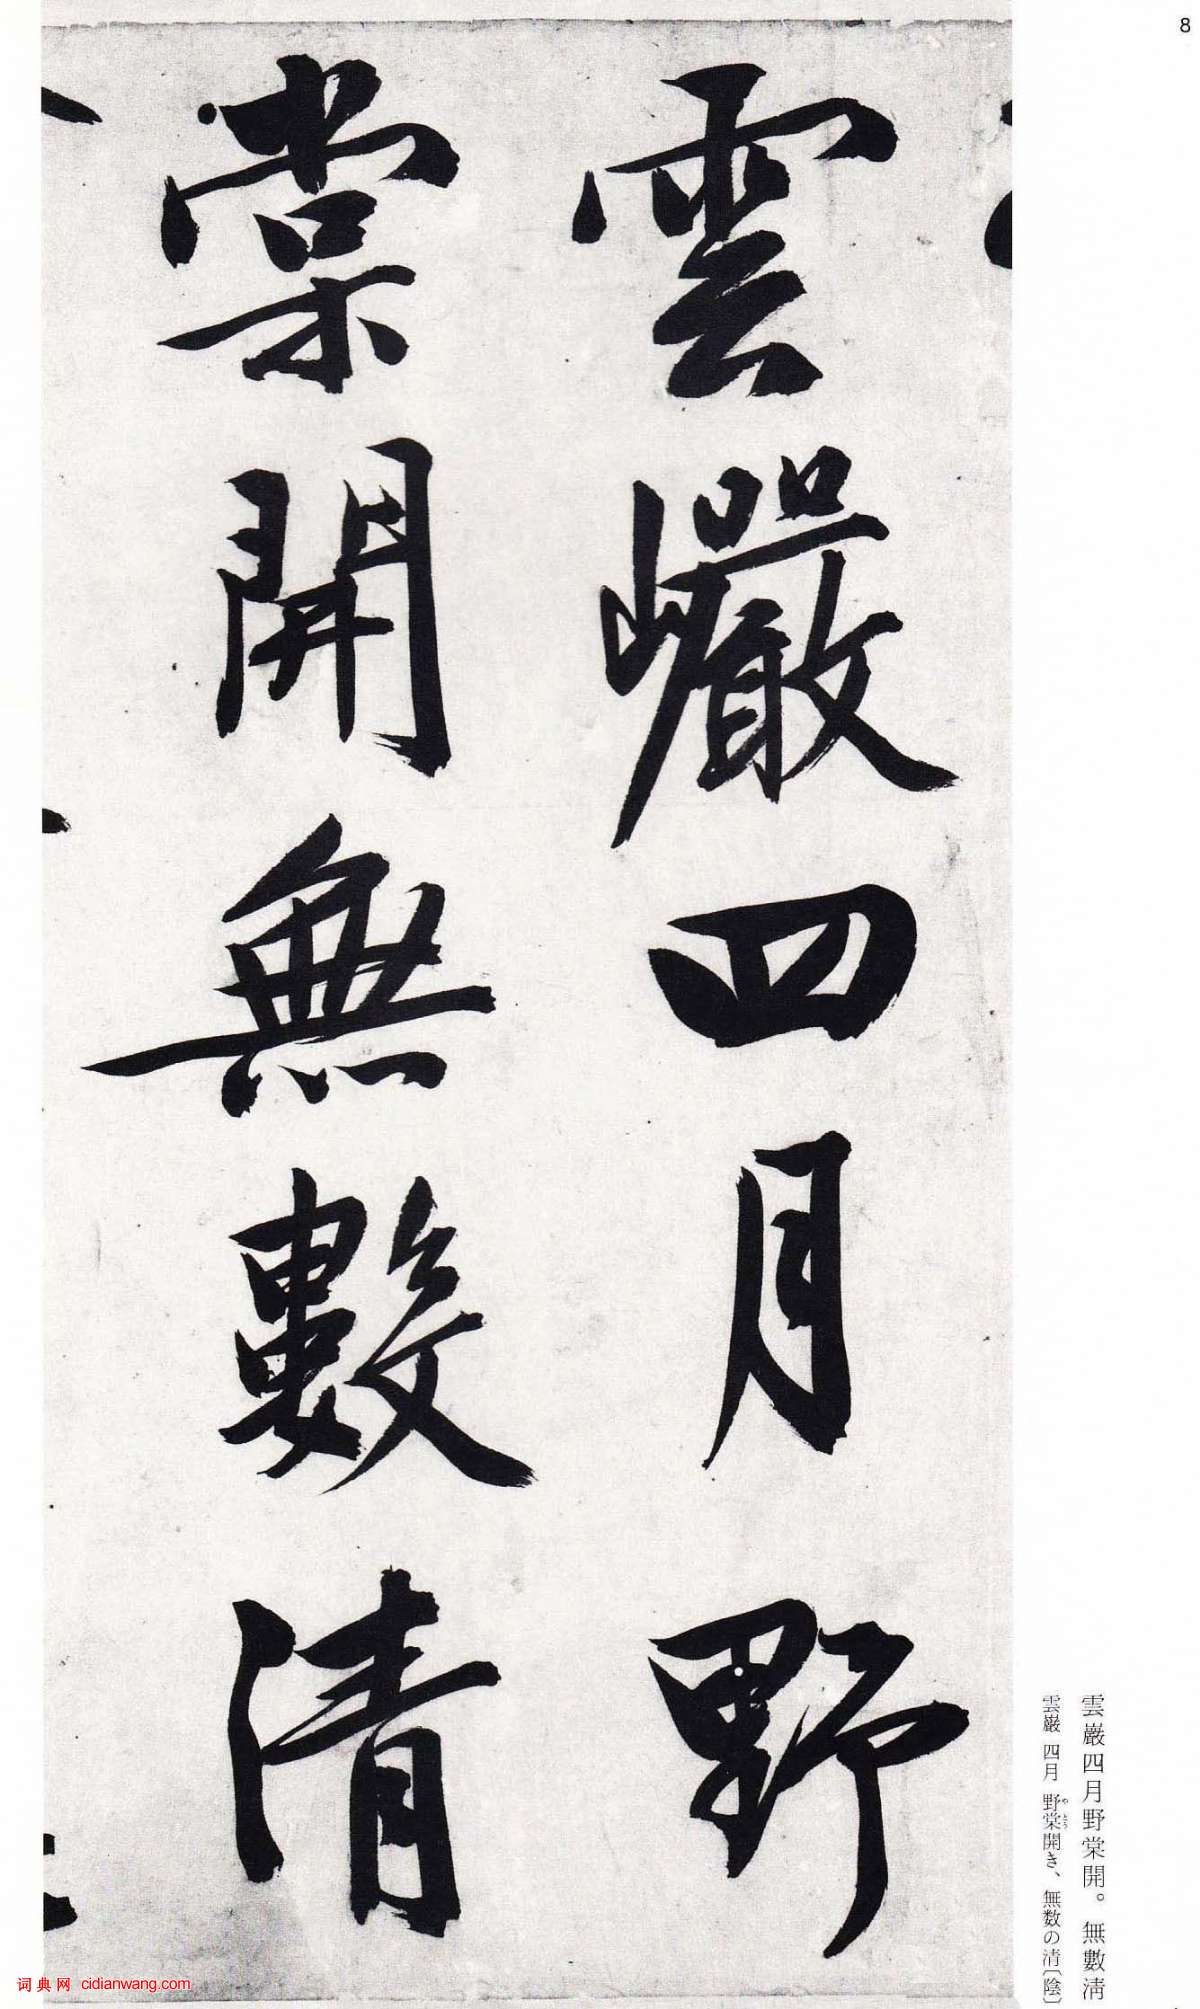 8
雲巖四月野
棠開無數清
雲巌四月野棠開。無數淸
雲巌 四月 野棠開き、無数の清〔陰〕
やとう
词典网 cidianwang.com